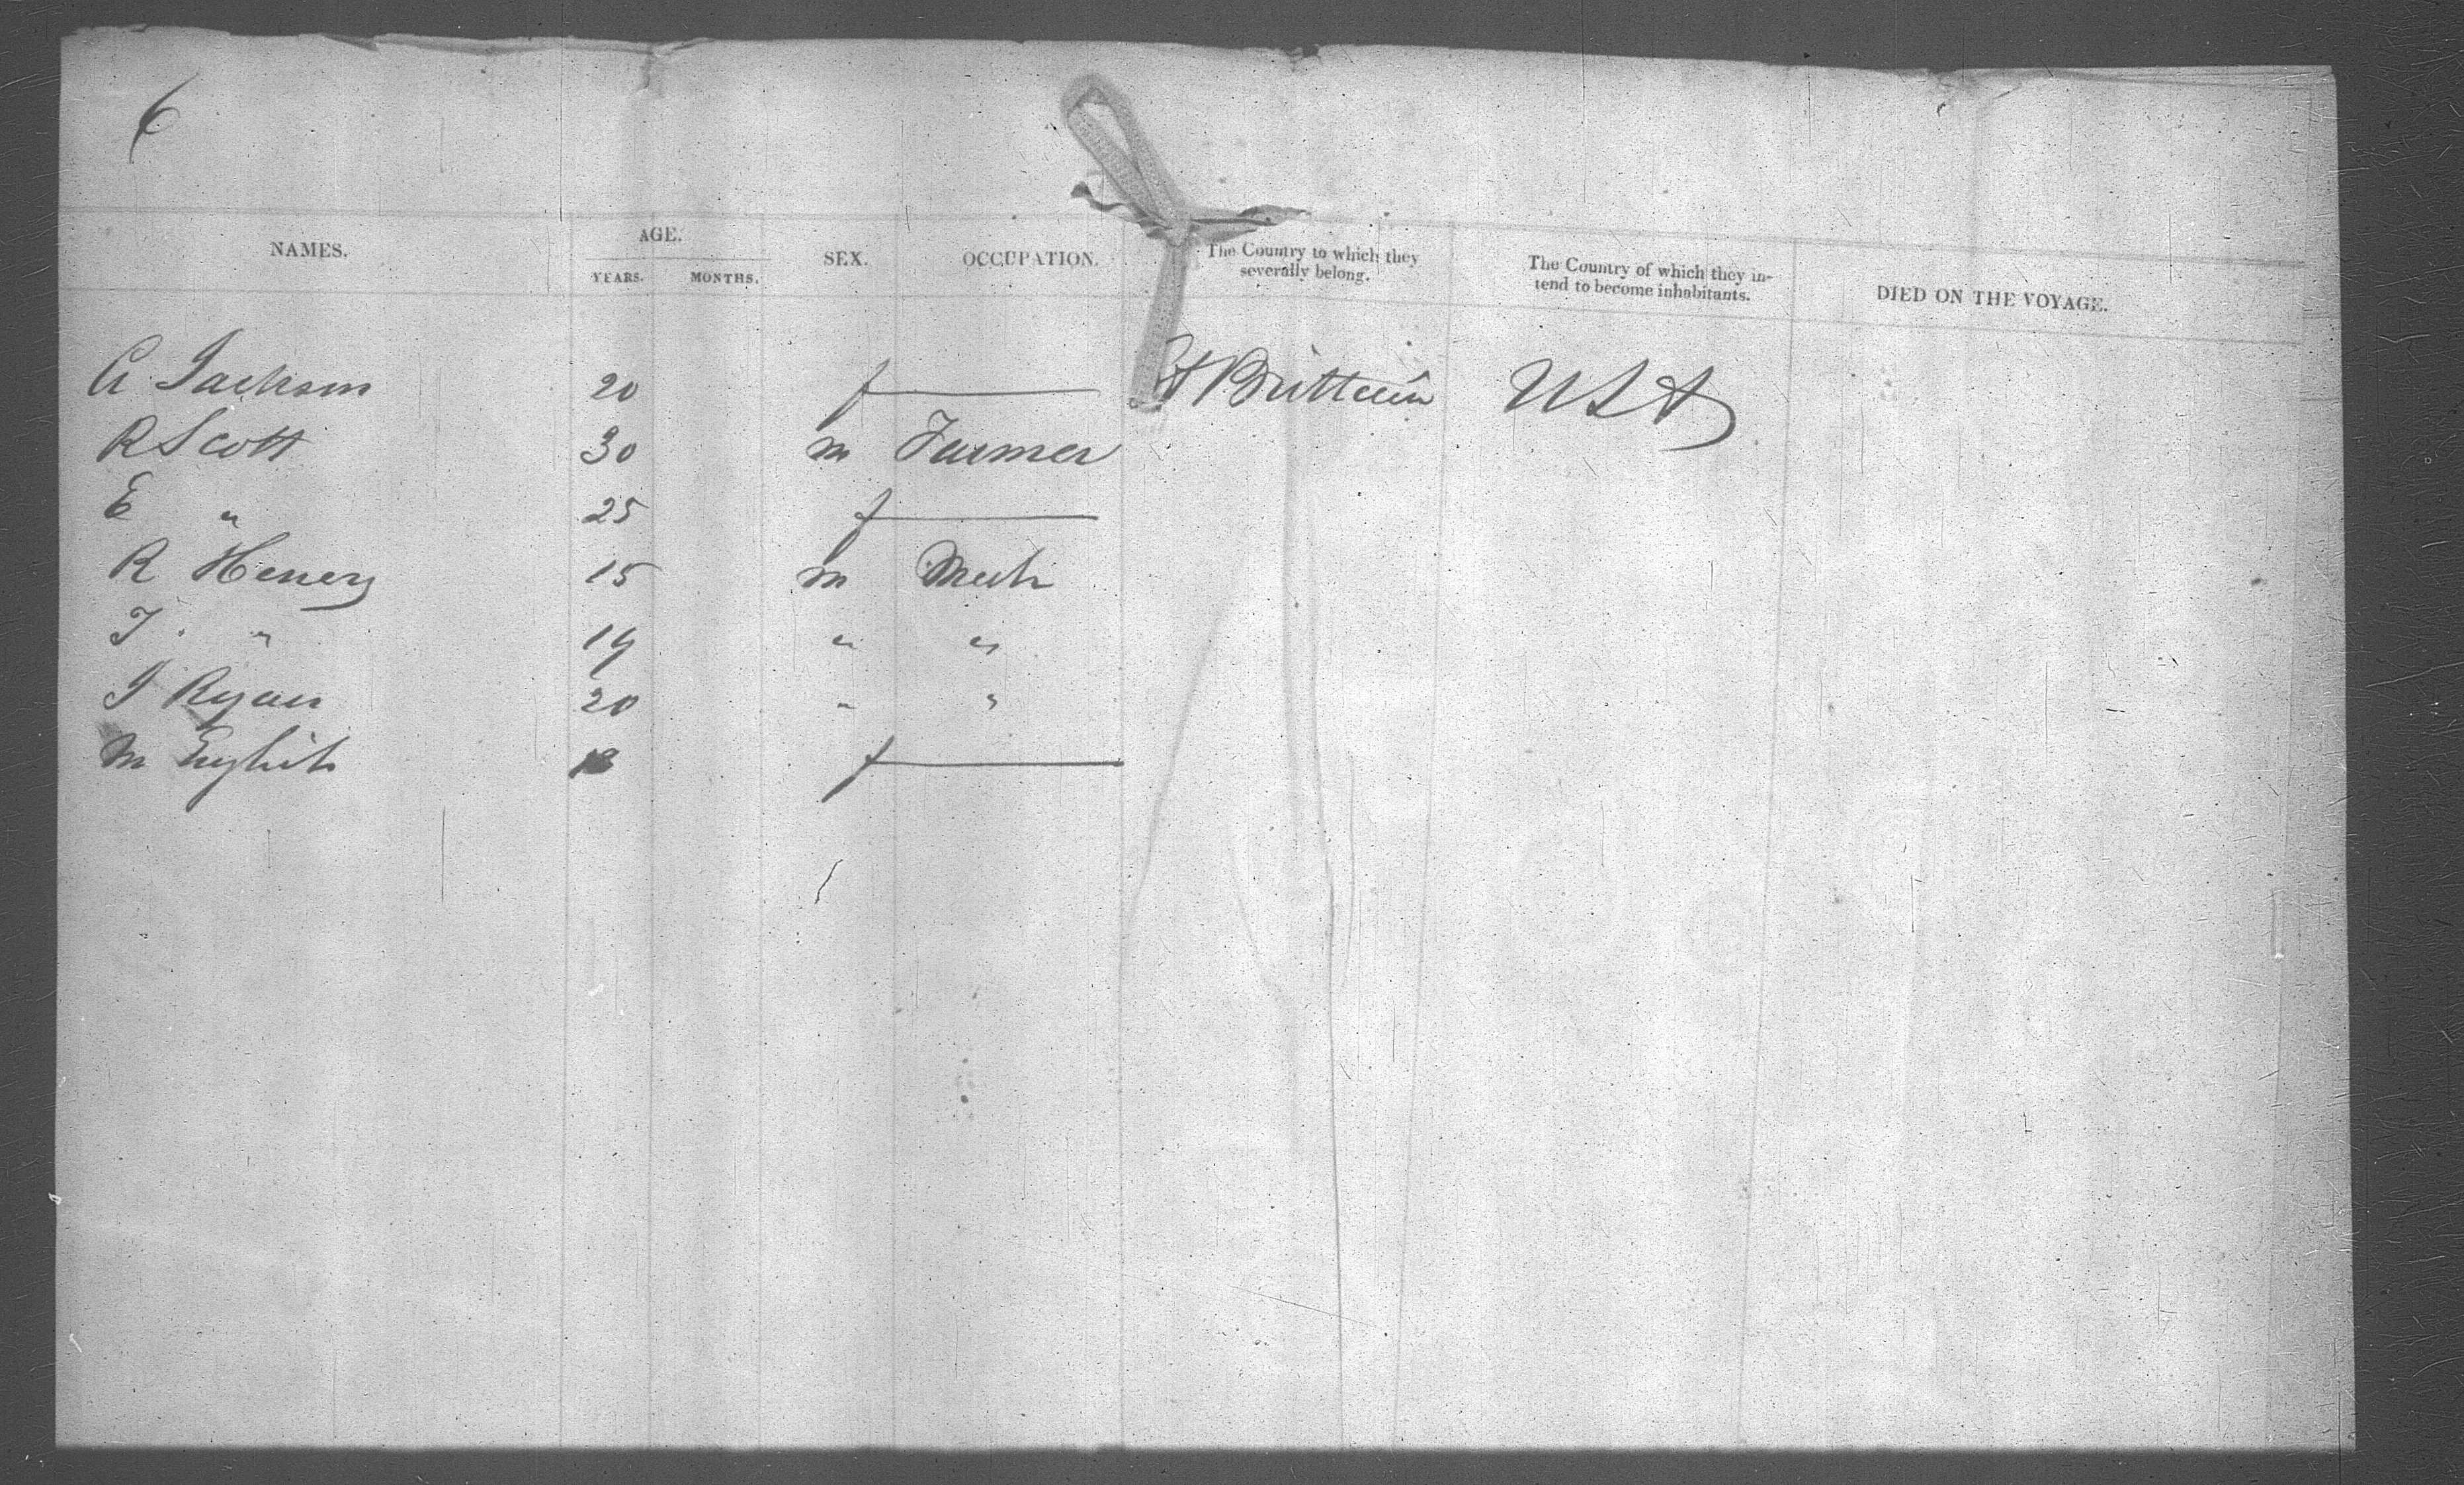 6
NAMES. AGE. YEARS. MONTHS. SEX. OCCUPATION. The Country to which they severally belong. The Country of which they intend to become inhabitants. DIED ON THE VOYAGE.
A Jackson 20 f Gt Brittain USA
R Scott 30 m Farmer
E " 25 f
R Henery 15 m Mech
T. " 19 " "
J Ryan 20 " "
M English f